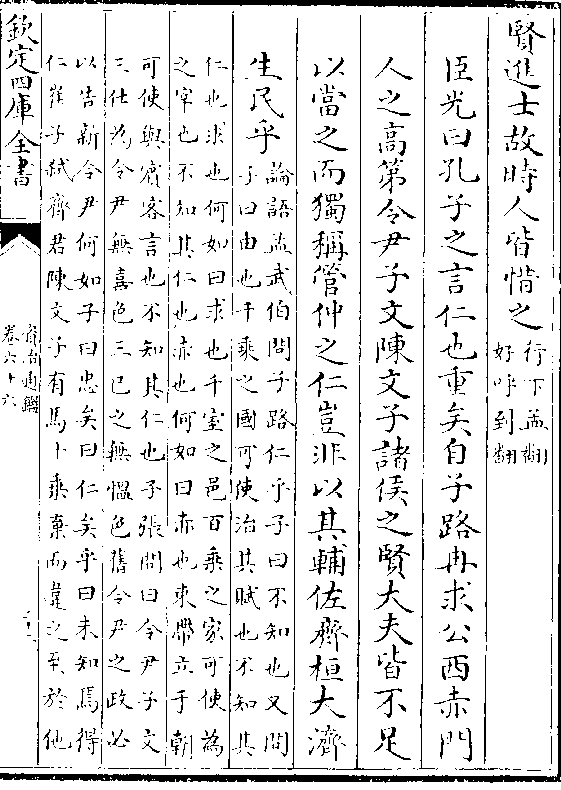 賢進士故時人皆惜之
行下孟翻
好呼到翻
臣光曰孔子之言仁也重矣自子路冉求公西赤門
人之高第令尹子文陳文子諸侯之賢大夫皆不足
以當之而獨稱管仲之仁豈非以其輔佐齊桓大濟
生民乎
論語孟武伯問子路仁乎子曰不知也又問
子曰由也千乘之國可使治其賦也不知其
仁也求也何如曰求也千室之邑百乘之家可使為
之宰也不知其仁也赤也何如曰赤也束帶立于朝
可使與賓客言也不知其仁也子張問曰令尹子文
三仕為令尹無喜色三已之無愠色舊令尹之政必
以告新令尹何如子曰忠矣曰仁矣乎曰未知焉得
仁崔子弑齊君陳文子有馬十乘棄而違之至於他
欽定四庫全書
資治通鑑
卷六十六